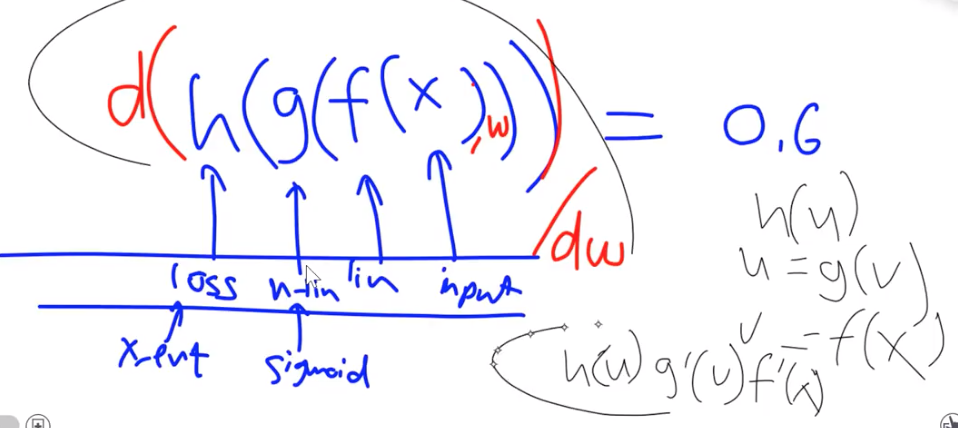 d(h(g(f(x),w)))/dw = 0.6
loss n-lin lin input
x-ent sigmoid
h(u)
u = g(v)
v = f(x)
h(u) g'(v) f'(x)